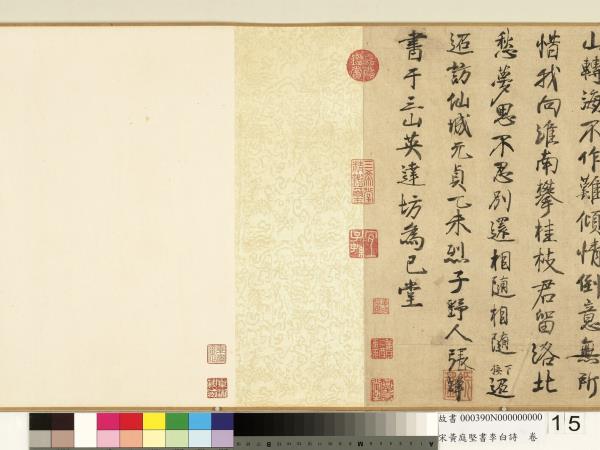 山轉海不作難傾情倒意無所
惜我向淮南攀桂枝君留洛北
愁夢思不忍別還相隨相隨下接迢
迢訪仙城元貞乙未烈子野人張
書于三山英達坊為己堂
三希堂精鑑璽
宜子孫
故書 000390N000000000
宋黃庭堅書李白詩 卷
15